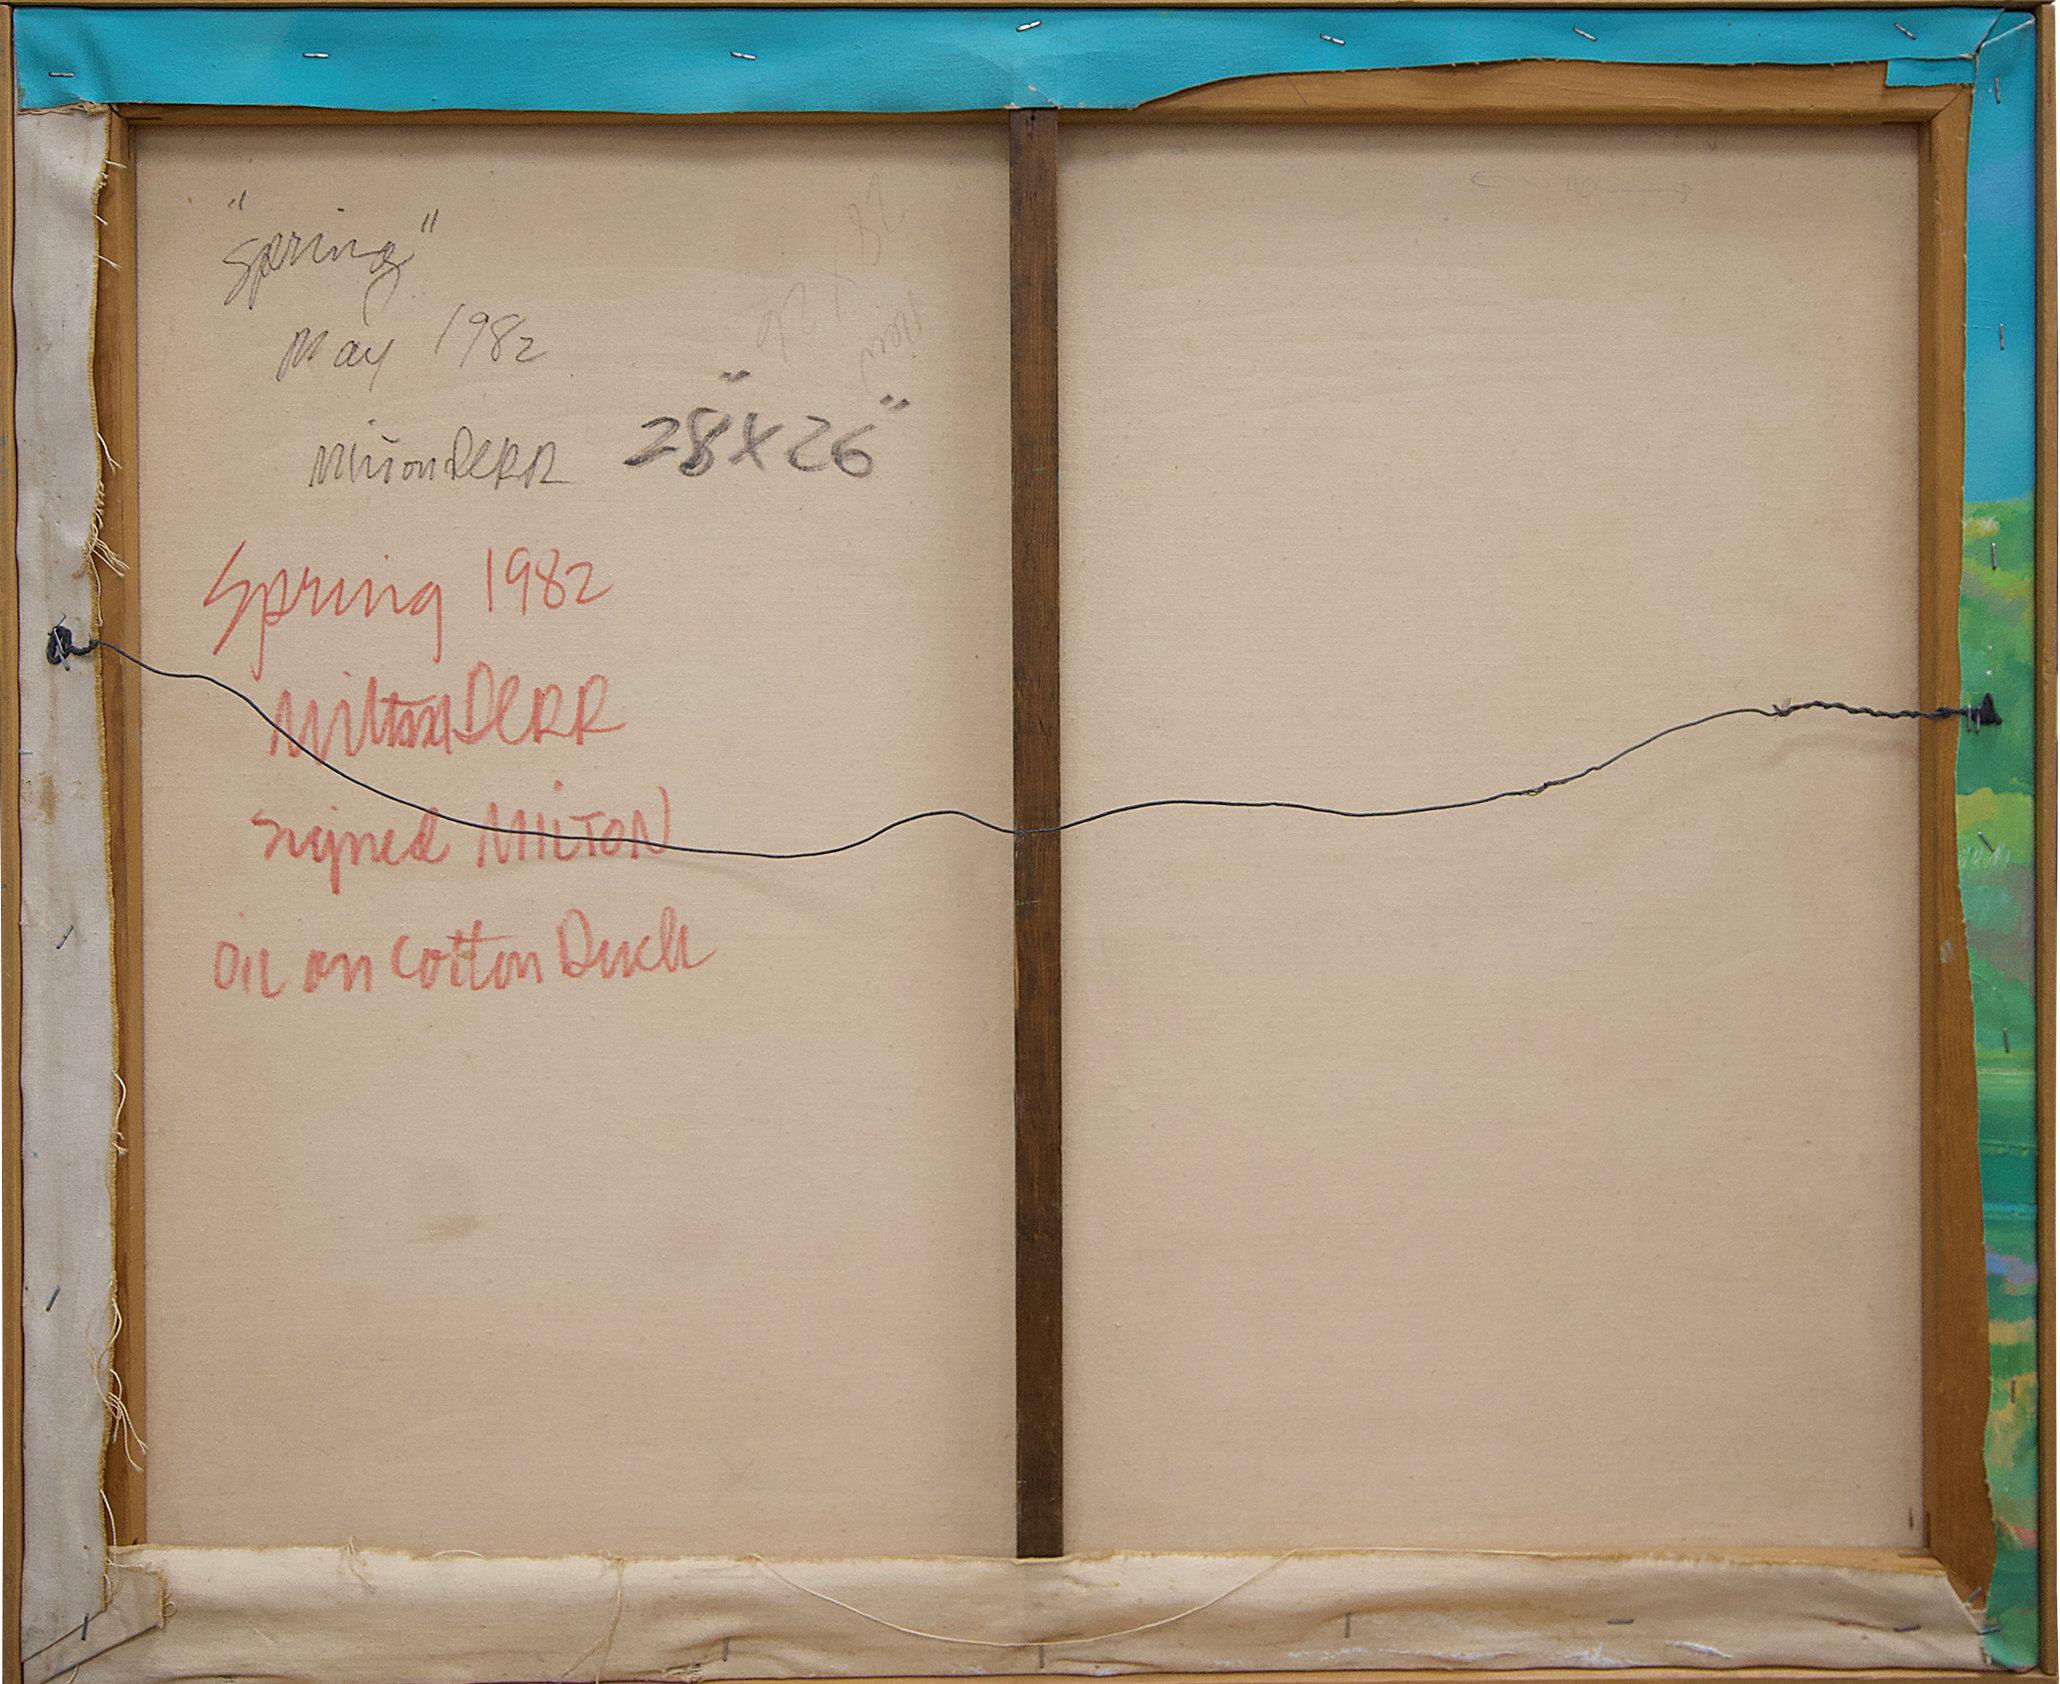 "Spring"
May 1982
Milton Derr 28" x 26"
Spring 1982
Milton Derr
signed MILTON
Oil on Cotton Duck